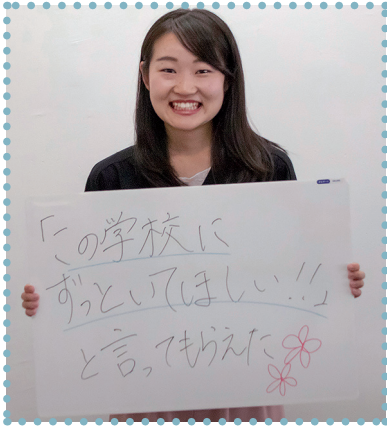 「この学校に
ずっといてほしい!!」
と言ってもらえた